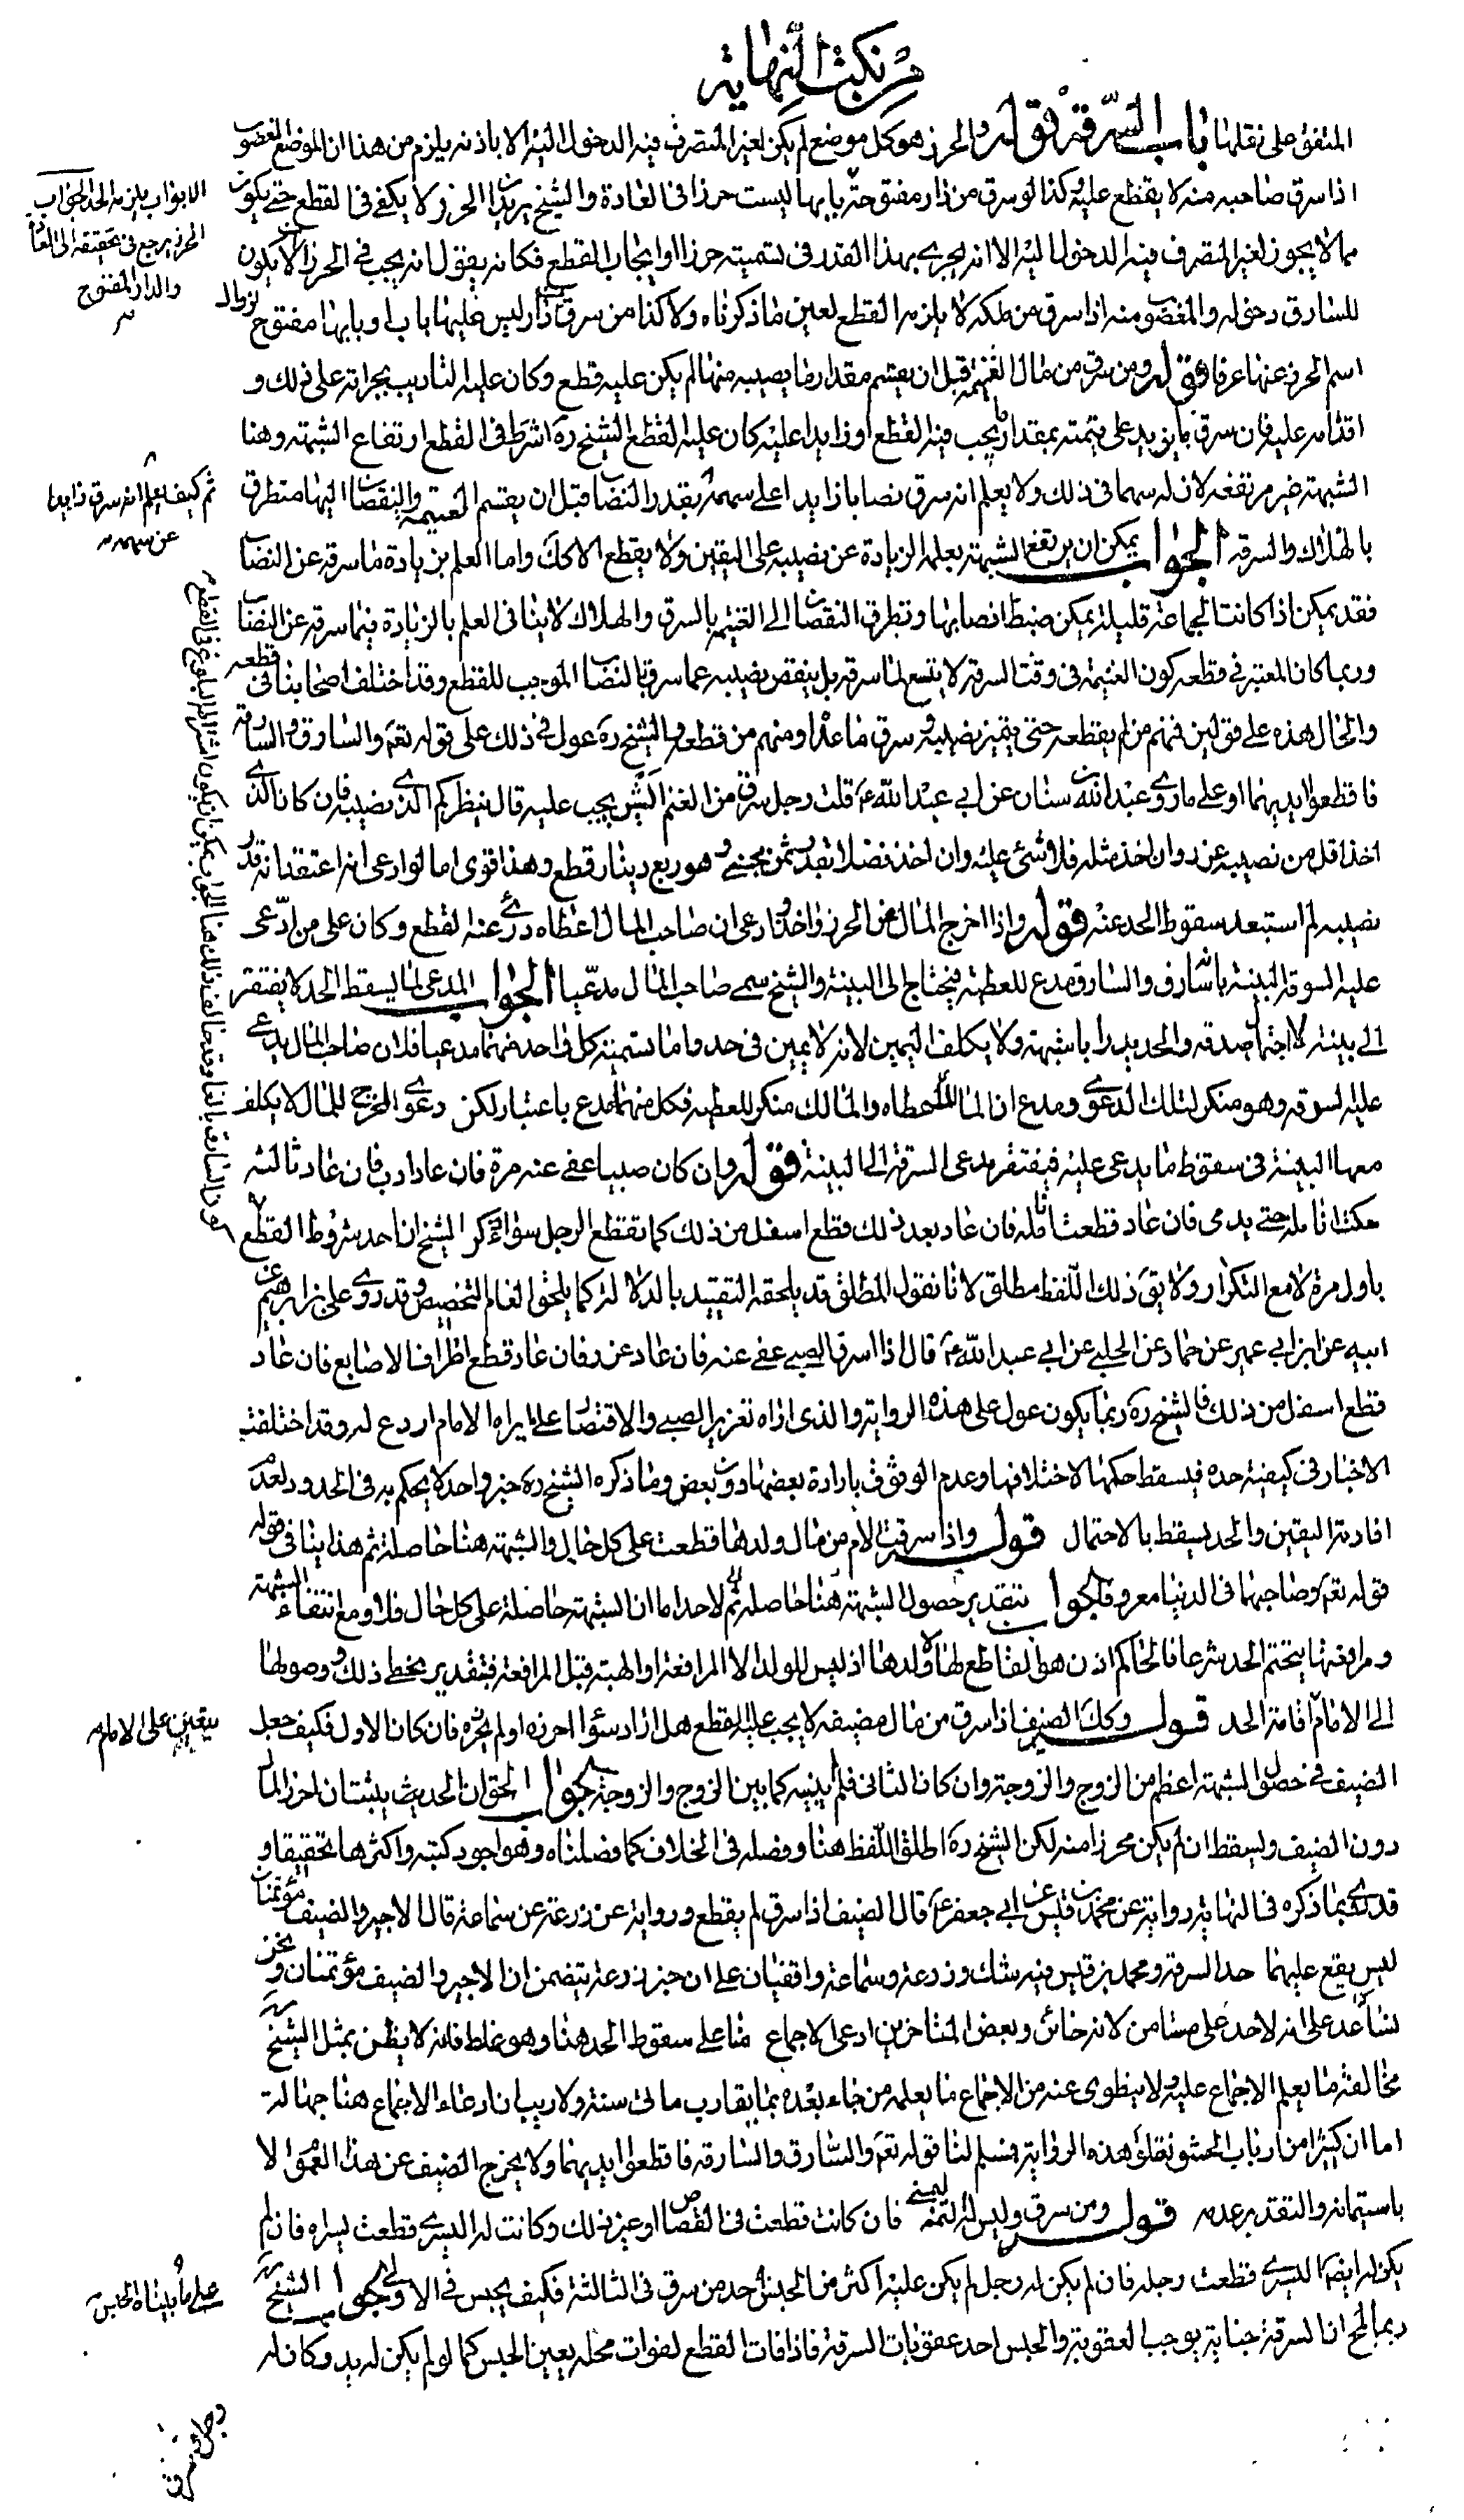 من نكت النهاية
المتفق على نقلها باب السرقة قوله والحرز هو كل موضع لم يكن لغير المتصرف فيه الدخول اليه الا باذنه يلزم من هذا ان الموضع المغصوب
اذا سرق صاحبه منه لا يقطع عليه وكذا لو سرق من دار مفتوحة بابها ليست حرزا فى العادة والشيخ يريد ان الحرز لا يكفى فى القطع حتى يكون
مما لا يجوز لغير المتصرف فيه الدخول اليه الا انه يجرى بهذا القدر فى تسميته حرزا وايجاب القطع فكانه يقول انه يجب فى الحرز ان لا يكون
للسارق دخوله والمغصوب منه اذا سرق من ملكه لا يلزمه القطع لعين ما ذكرناه ولا كذا من سرق من دار ليس عليها باب او بابها مفتوح لزوال
اسم الحرز عنها عرفا قوله ومن سرق من مال الغنيمة قبل ان يقسم مقدار ما يصيبه منها لم يكن عليه قطع وكان عليه التاديب بجراته على ذلك و
اقدامه عليه فان سرق ما يزيد على قيمته بمقدار ما يجب فيه القطع او زايدا عليه كان عليه القطع الشيخ ره اشترط فى القطع ارتفاع الشبهة وهنا
الشبهة غير مرتفعة لان له سهما فى ذلك ولا يعلم انه سرق نصابا زايدا على سهمه بقدر النصاب قبل ان يقسم الغنيمة والنقصان اليها متطرق
بالهلاك والسرقة الجواب يمكن ان يرتفع الشبهة بعلمه الزيادة عن نصيبه على اليقين ولا يقطع الا كك واما العلم بزيادة ما سرقه عن النصاب
فقد يمكن اذا كانت الجماعة قليلة يمكن ضبط انصابها وتطرق النقصان الى الغنيمة بالسرق والهلاك لا ينافى العلم بالزيادة فيما سرقه عن النصاب
وربما كان المعتبر فى قطعه كون الغنيمة فى وقت السرقة لا يتسع لما سرقه بل ينقص نصيبه عما سرق بالنصاب الموجب للقطع وقد اختلف اصحابنا فى قطعه
والحال هذه على قولين فمنهم من لم يقطعه حتى يتميز نصيبه ويسرق ما عداه ومنهم من قطعه والشيخ ره عول فى ذلك على قوله تعم والسارق والسارقة
فاقطعوا ايديهما او على ما روى عبد الله بن سنان عن ابى عبد الله ع قلت رجل سرق من الغنم ايش يجب عليه قال ينظر كم الذى نصيبه فان كان الذى
اخذ اقل من نصيبه عزر وان اخذ مثله فلا شئ عليه وان اخذ فضلا بقدر ثمن مجن وهو ربع دينار قطع وهذا قوى اما لو ادعى انه اعتقد انه قدر
نصيبه لم استبعد سقوط الحد عنه قوله واذا اخرج المال من الحرز واخذ وادعى ان صاحب المال اعطاه درئ عنه القطع وكان على من ادعى
عليه السرقة البينة بانه سارق والسارق مدع للعطية فيحتاج الى البينة والشيخ سمى صاحب المال مدعيا الجواب المدعى لما يسقط الحد لا يفتقر
الى بينة لاحتمال صدقه والحد يدرا بالشبهة ولا يكلف اليمين لانه لا يمين فى حد واما تسميته كل واحد منهما مدعيا فلان صاحب المال يدعى
عليه السرقة وهو منكر لتلك الدعوى ومدع ان المالك اعطاه والمالك منكر للعطية فكل منهما مدع باعتبار لكن دعوى المخرج للمال لا يكلف
معها البينة فى سقوط ما يدعى عليه فيفتقر مدعى السرقة الى البينة قوله وان كان صبيا عفى عنه مرة فان عاد ادب فان عاد ثالثة
حكت انامله حتى يدمى فان عاد قطعت انامله فان عاد بعد ذلك قطع اسفل من ذلك كما تقطع الرجل سواء ذكر الشيخ ان احد شروط القطع
باول مرة لا مع التكرار ولا يق ذلك اللفظ مطلق لانا نقول المطلق قد يلحقه التقييد بالدلالة كما يلحق العام التخصيص وقد روى على بن ابرهيم عن
ابيه عن ابن ابى عمير عن حماد عن الحلبى عن ابى عبد الله ع قال اذا سرق الصبى عفى عنه فان عاد عزر فان عاد قطع اطراف الاصابع فان عاد
قطع اسفل من ذلك فالشيخ ره ربما يكون عول على هذه الرواية والذى اراه تعزير الصبى والاقتصار على ما يراه الامام اردع له وقد اختلفت
الاخبار فى كيفية حده فيسقط حكمها لاختلافها وعدم الوثوق بارادة بعضها دون بعض وما ذكره الشيخ ره خبر واحد لا يحكم به فى الحدود لعدم
افادته اليقين والحد يسقط بالاحتمال قوله واذا سرقت الام من مال ولدها قطعت على كل حال والشبهة هنا حاصلة ثم هذا ينافى قوله
قوله تعم وصاحبهما فى الدنيا معروفا الجواب بتقدير حصول الشبهة هنا حاصلة ثم لا حد اما ان الشبهة حاصلة على كل حال فلا ومع انتفاء الشبهة
ومرافعتها يتحتم الحد شرعا فالحاكم اذن هو القاطع لها لا ولدها اذ ليس للولد الا المرافعة او الهبة قبل المرافعة فبتقدير تخطى ذلك ووصولها
الى الامام اقامة الحد قوله وكك الضيف اذا سرق من مال مضيفه لا يجب عليه القطع هل اراد سواء احرزه او لم يحرزه فان كان الاول فكيف جعل
الضيف فى حصول الشبهة اعظم من الزوج والزوجة وان كان الثانى فلم يبينه كما بين الزوج والزوجة الجواب الحق ان الحد يثبت ان احرز المال
دون الضيف ويسقط ان لم يكن محرزا منه لكن الشيخ ره اطلق اللفظ هنا وفصله فى الخلاف كما فصلناه وهو اجود كتبه واكثرها تحقيقا و
قد روى بما ذكره فى النهاية رواية عن محمد بن قيس عن ابى جعفر ع قال الضيف اذا سرق لم يقطع ورواية عن زرعة عن سماعة قال الاجير والضيف مؤتمنان
ليس يقع عليهما حد السرقة ومحمد بن قيس فيه شك وزرعة وسماعة واقفيان على ان خبر زرعة يتضمن ان الاجير والضيف مؤتمنان ونحن
نساعد على انه لا حد على مستامن لانه خائن وبعض المتاخرين ادعى الاجماع منا على سقوط الحد هنا وهو غلط فانه لا يظن بمثل الشيخ ره
مخالفة ما يعلم الاجماع عليه ولا ينطوى عنه من الاجماع ما يعلمه من جاء بعده بما يقارب مائتى سنة ولا ريب ان ادعاء الاجماع هنا جهالة
اما ان كثيرا من ارباب الحشو نقلوا هذه الرواية فمسلم لنا قوله تعم والسارق والسارقة فاقطعوا ايديهما ولا يخرج الضيف عن هذا العموم الا
باستيمانه والتقدير عدمه قوله ومن سرق وليس له اليمنى فان كانت قطعت فى القصاص او غير ذلك وكانت له اليسرى قطعت يسراه فان لم
يكن له ايضا اليسرى قطعت رجله فان لم يكن له رجل لم يكن عليه اكثر من الحبس احد من سرق فى الثالثة فكيف يحبس فى الاولى الجواب الشيخ ره
ربما لمح ان السرقة جناية يوجب العقوبة والحبس احد عقوبات السرقة فاذا فات القطع لفوات محله يعين الحبس كما لو لم يكن له يد وكان له
الابواب يلزمه الحد الجواب
الحرز يرجع فى تحقيقه الى العادة
والدار المفتوح
ثم كيف يعلم انه سرق زايدا
عن سهمه
يتعين على الامام
على ما بيناه الحبس